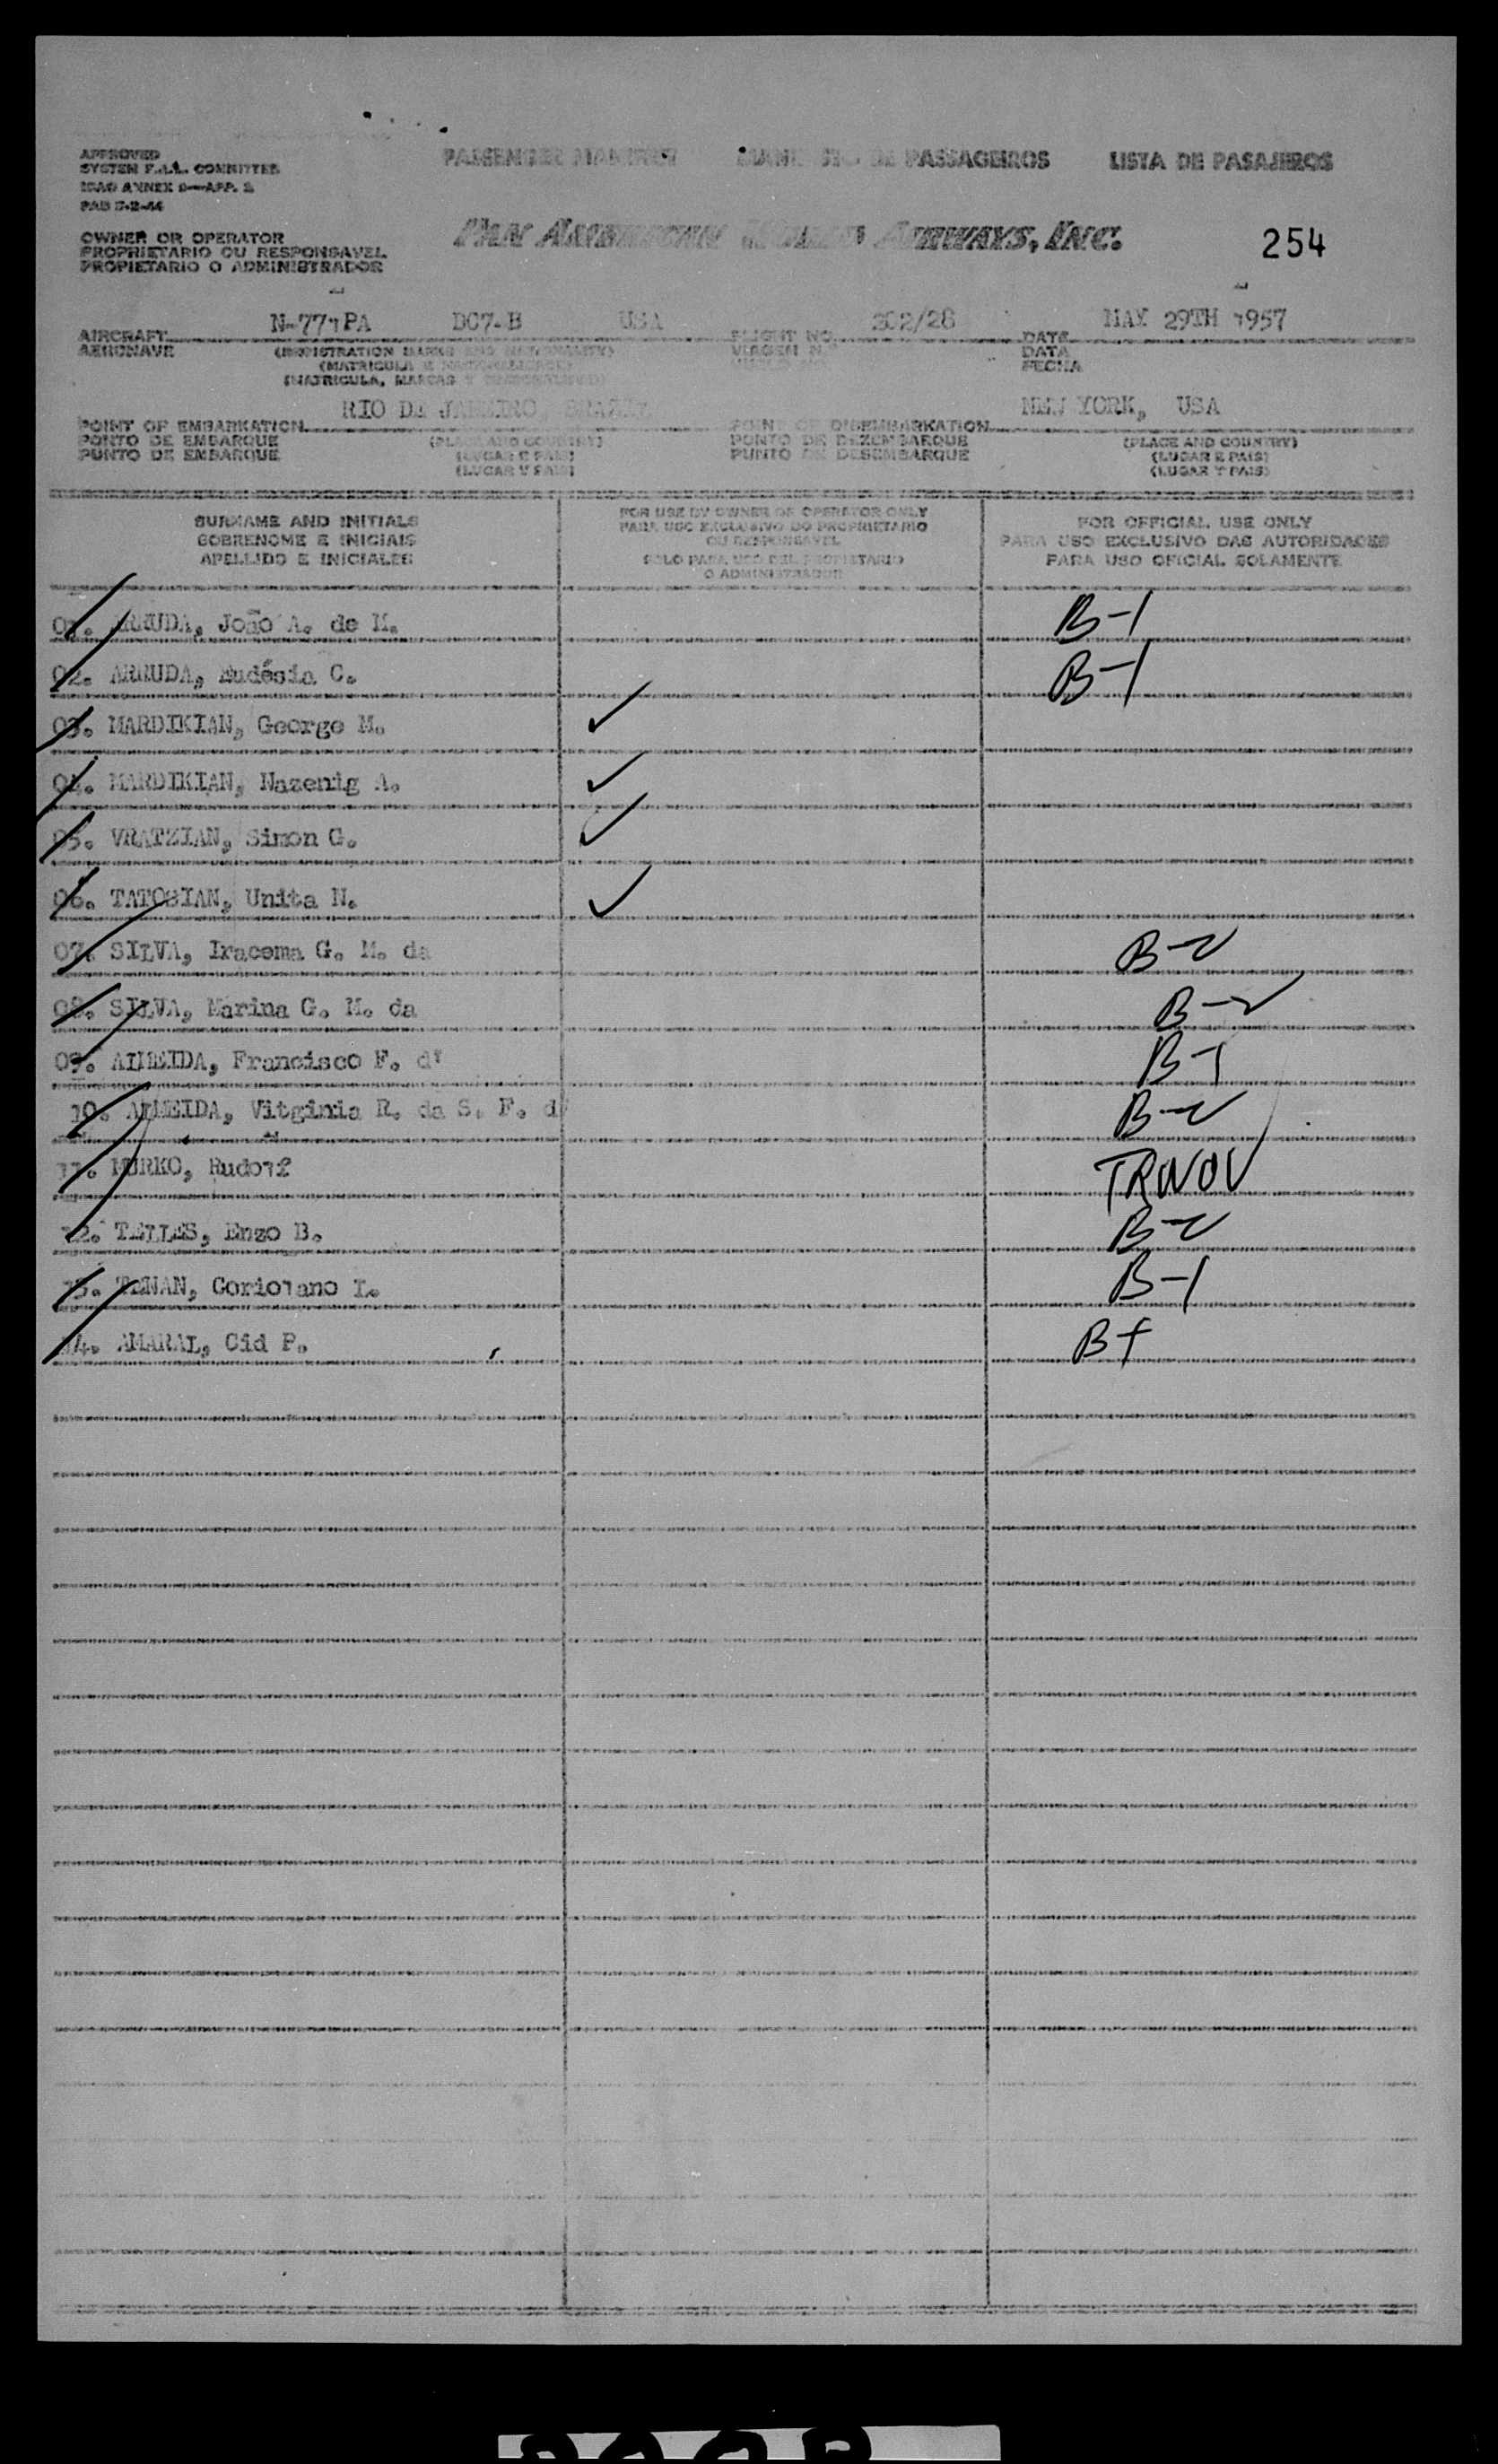 APPROVED
SYSTEM F.A.L. COMMITTEE
ICAO ANNEX 9—APP. 2
PASSENGER MANIFEST DE PASSAGEIROS LISTA DE PASAJEROS
OWNER OR OPERATOR
PROPRIETARIO OU RESPONSAVEL
PROPIETARIO O ADMINISTRADOR
PAN AMERICAN WORLD AIRWAYS, INC.
254
AIRCRAFT N-771PA DC7-B USA FLIGHT NO. 202/28 DATE MAY 29TH 1957
AERONAVE (REGISTRATION MARKS AND NATIONALITY) VIAGEM N.º DATA
(MATRICULA E NACIONALIDADE) FECHA
(MATRICULA, MARCAS Y NACIONALIDAD)
POINT OF EMBARKATION RIO DE JANEIRO, BRAZIL POINT OF DISEMBARKATION NEW YORK, USA
PONTO DE EMBARQUE (PLACE AND COUNTRY) PONTO DE DEZEMBARQUE (PLACE AND COUNTRY)
PUNTO DE EMBARQUE (LUGAR E PAIS) PUNTO DE DESEMBARQUE (LUGAR E PAIS)
(LUGAR Y PAIS) (LUGAR Y PAIS)
SURNAME AND INITIALS
SOBRENOME E INICIAIS
APELLIDO E INICIALES
FOR USE BY OWNER OR OPERATOR ONLY
PARA USO EXCLUSIVO DO PROPRIETARIO
OU RESPONSAVEL
SOLO PARA USO DEL PROPIETARIO
O ADMINISTRADOR
FOR OFFICIAL USE ONLY
PARA USO EXCLUSIVO DAS AUTORIDADES
PARA USO OFICIAL SOLAMENTE
01. ARRUDA, João A. de M. B-1
02. ARRUDA, Eudésia C. B-1
03. MARDIKIAN, George M. ✓
04. MARDIKIAN, Nazenig A. ✓
05. VRATZIAN, Simon G. ✓
06. TATOSIAN, Unita N. ✓
07. SILVA, Iracema G. M. da B-2
08. SILVA, Marina G. M. da B-2
09. ALMEIDA, Francisco F. d' B-1
10. ALMEIDA, Vitginia R. da S. F. d B-2
11. MURKO, Rudolf TRWOV
12. TELLES, Enzo B. B-2
13. TENAN, Coriolano L. B-1
14. AMARAL, Cid P. B-1